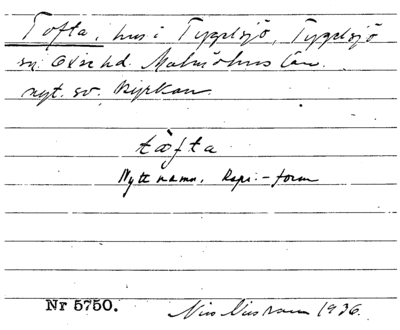 Tofta, hus i Tygelsjö, Tygelsjö
sn. Oxie hd. Malmöhus län.
nyt. sv. kyrkan.
tåfta
Nytt namn.
Nr 5750. 1936.